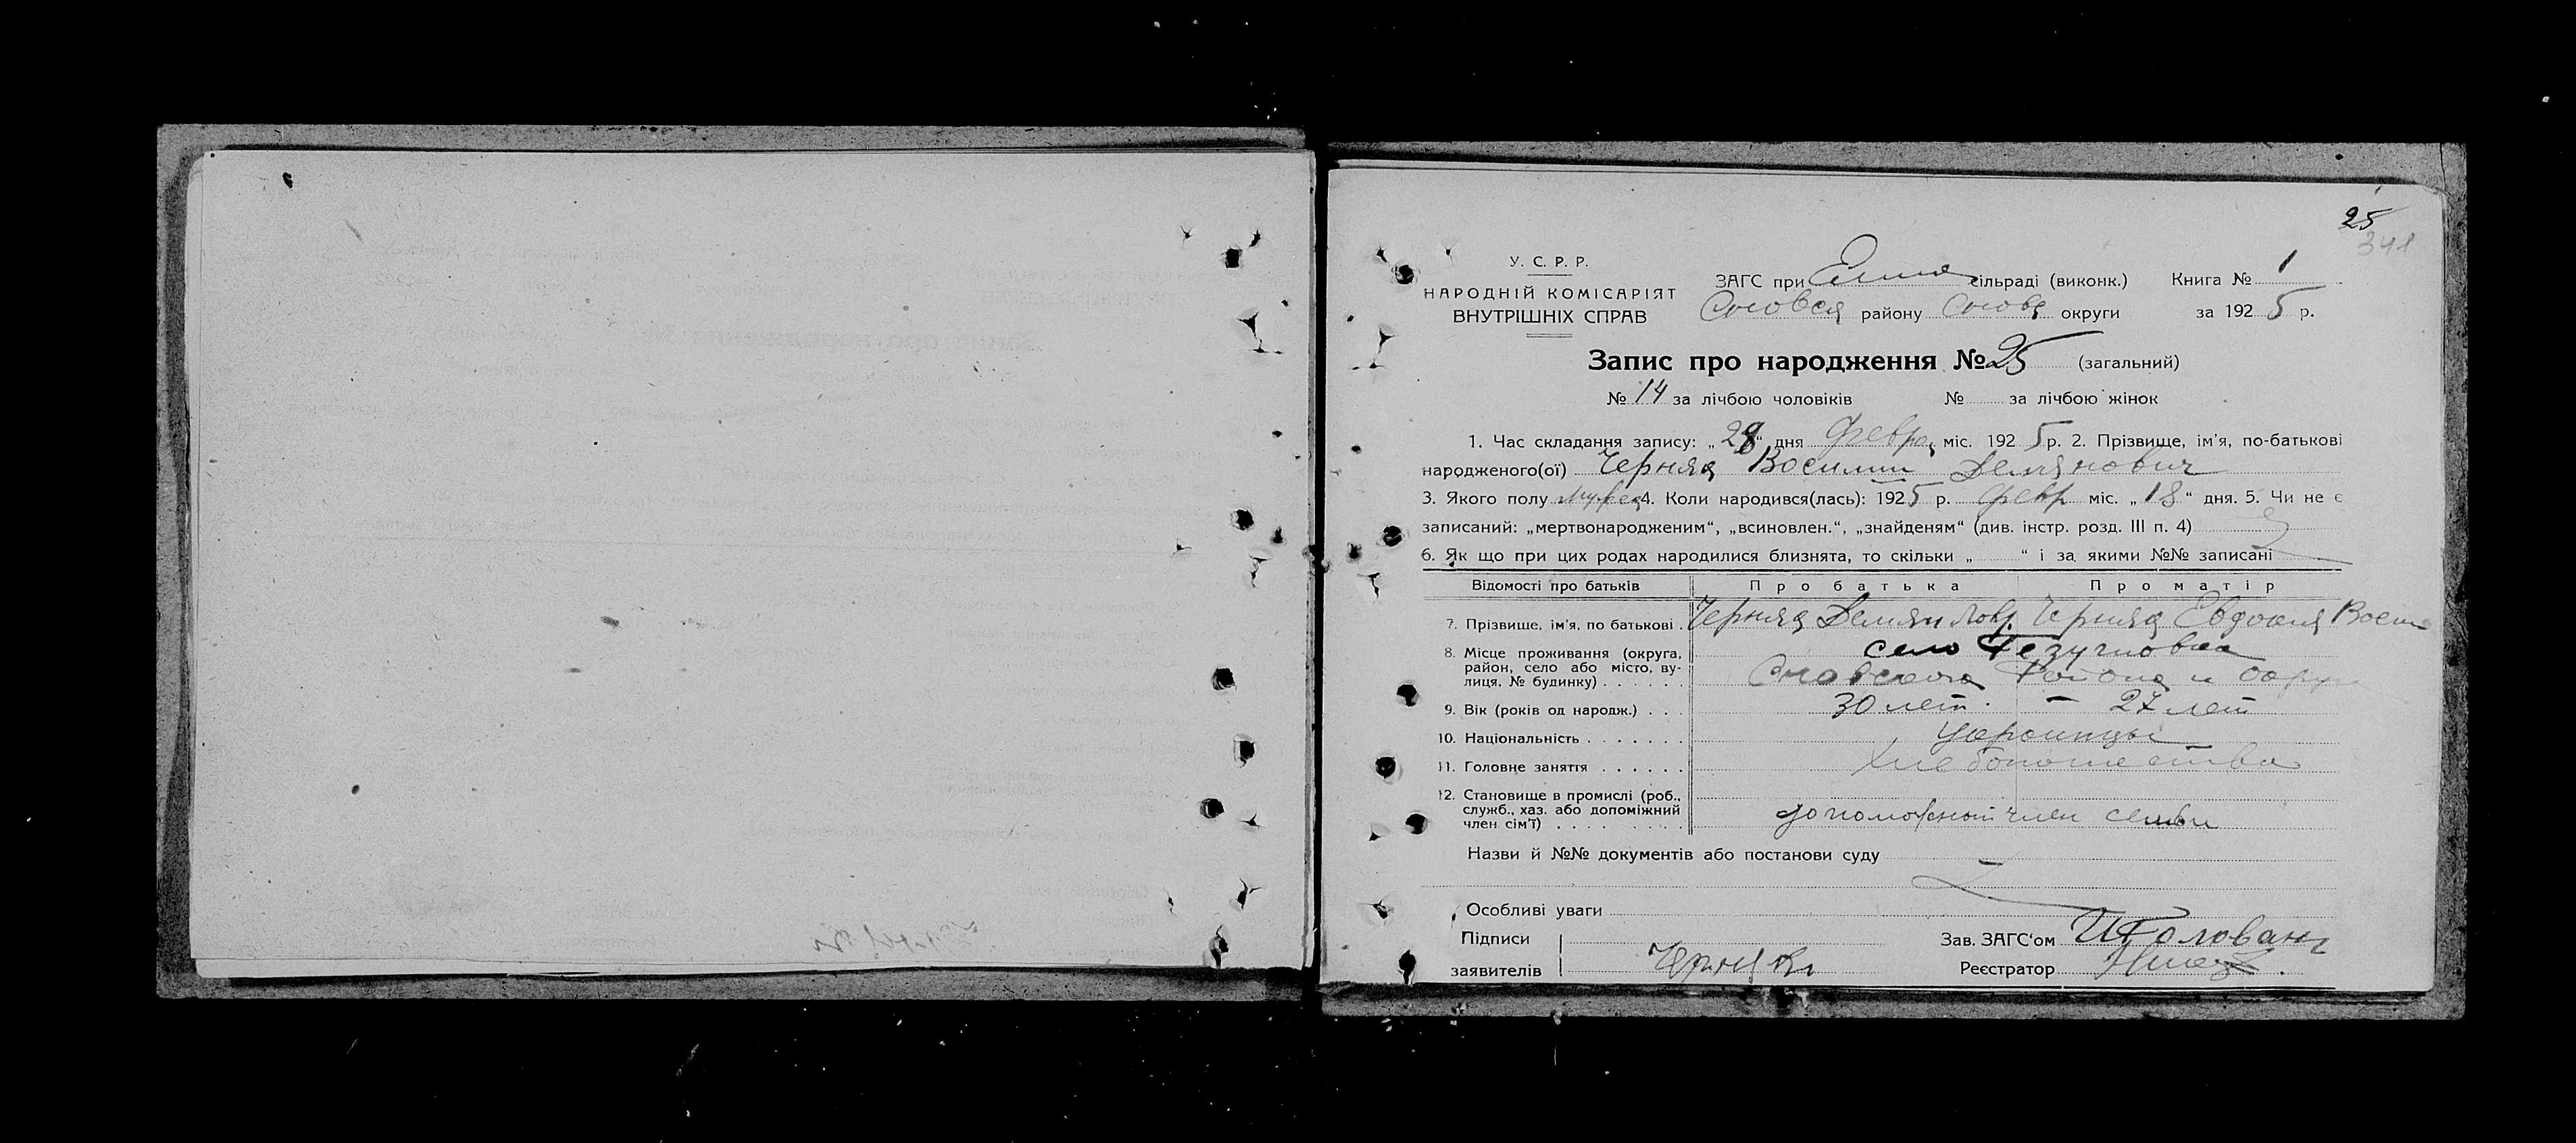 25
341
У. С. Р. Р.
НАРОДНІЙ КОМІСАРІЯТ
ВНУТРІШНІХ СПРАВ
ЗАГС при сільраді (виконк.) Книга № 1
району округи за 1925 р.
Запис про народження № 25 (загальний)
№ 14 за лічбою чоловіків № за лічбою жінок
1. Час складання запису: „28“ дня Февра міс. 1925 р. 2. Прізвище, ім'я, по-батькові
народженого(ої) Черняк Восилий Демянович
3. Якого полу 4. Коли народився(лась): 1925 р. февр міс. „18“ дня. 5. Чи не є
записаний: „мертвонародженим“, „всиновлен.“, „знайденям“ (див. інстр. розд. III п. 4)
6. Як що при цих родах народилися близнята, то скільки „ “ і за якими №№ записані
Відомості про батьків Про батька Про матір
7. Прізвище, ім'я, по батькові Черняк Демян Черняк Евдокия
8. Місце проживання (округа, район, село або місто, вулиця, № будинку) село
Района и
9. Вік (років од народж.) 30 лет — 27 лет
10. Національність украинцы
11. Головне заняття
12. Становище в промислі (роб., служб., хаз. або допоміжний член сім'ї) допоможный член семьи
Назви й №№ документів або постанови суду
Особливі уваги
Підписи заявителів Черняк
Зав. ЗАГС'ом
Реєстратор